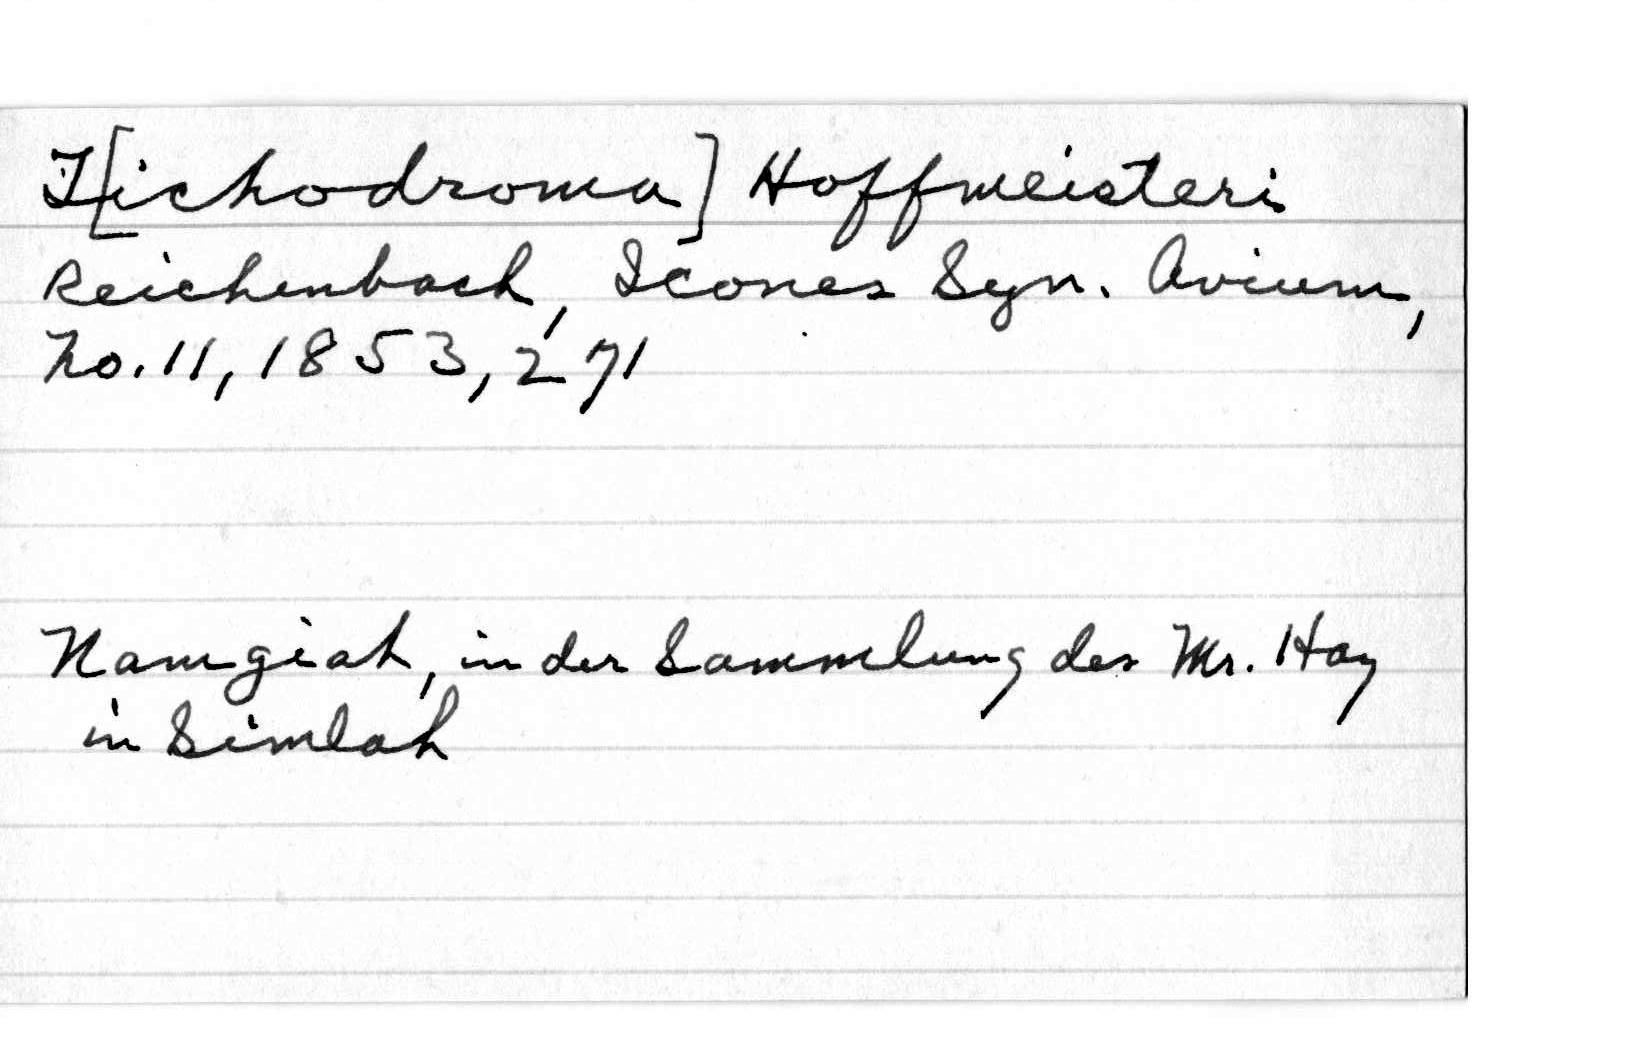 T[ichodroma] Hoffmeisteri
Reichenbach, Icones Syn. Avium,
no. 11, 1853, 271
Namgiah, in der Sammlung des Mr. Hay
in Simlah